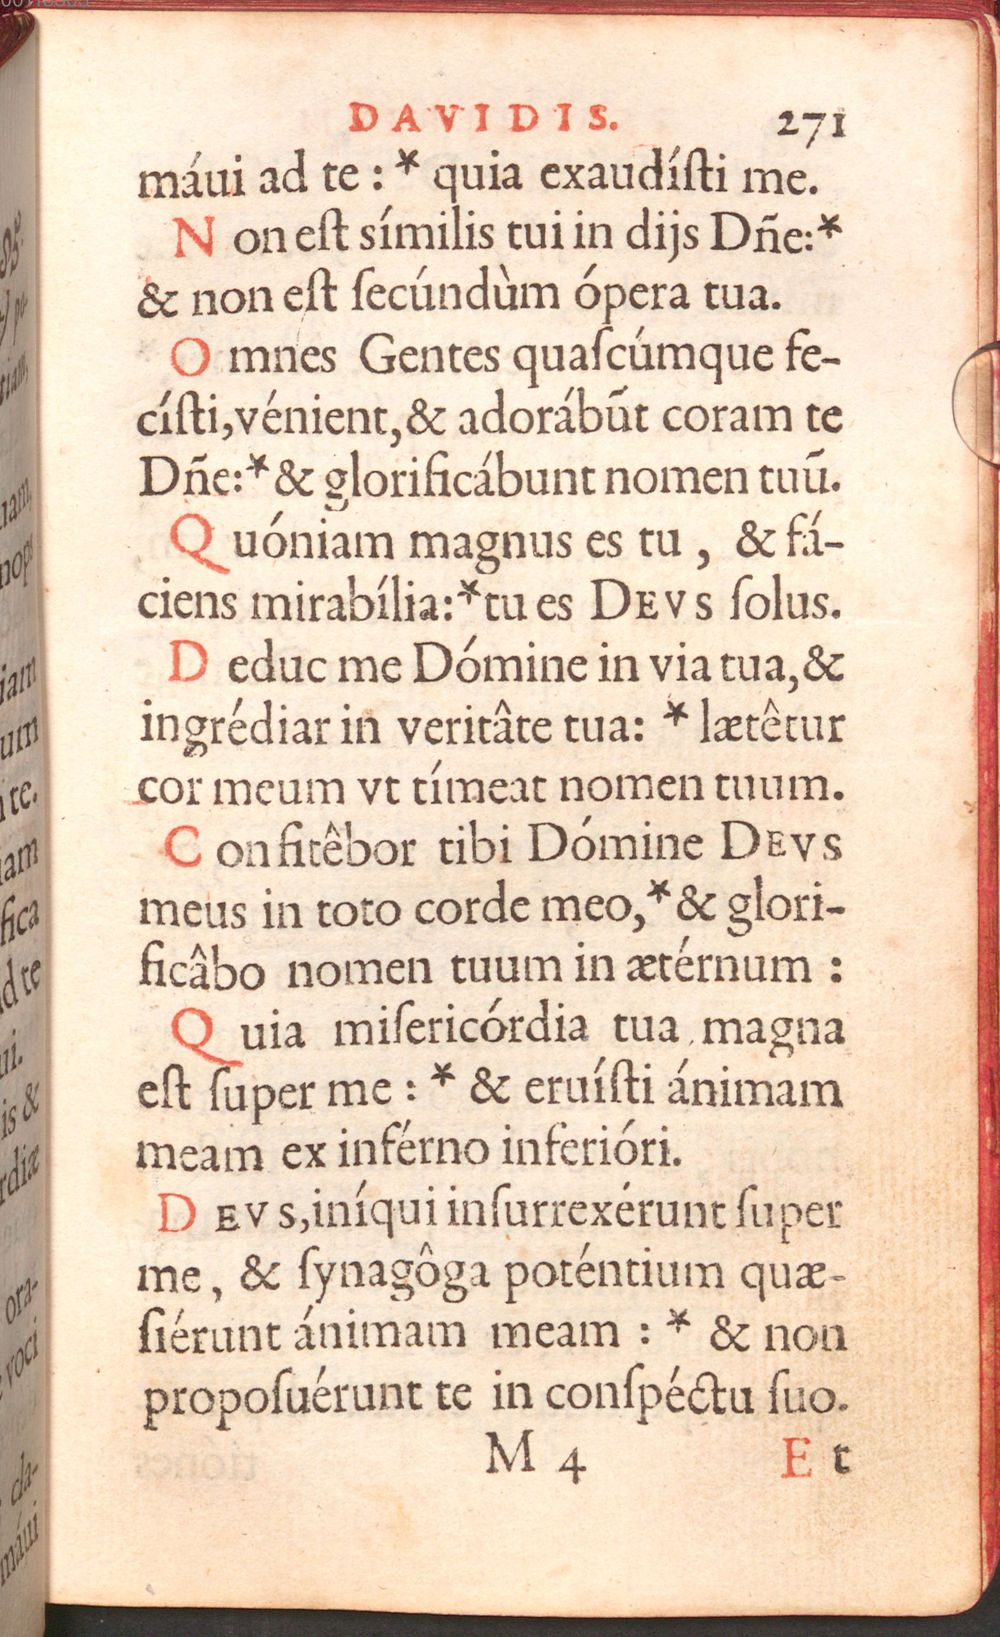 DAVIDIS. 271
máui ad te : * quia exaudíſti me.
Non eſt símilis tui in dijs Dñe:*
& non eſt ſecúndùm ópera tua.
Omnes Gentes quaſcúmque fe-
císti, vénient, & adorábũt coram te
Dñe:* & glorificábunt nomen tuũ.
Quóniam magnus es tu, & fá-
ciens mirabília:* tu es DEVS ſolus.
Deduc me Dómine in via tua, &
ingrédiar in veritâte tua: * lætêtur
cor meum vt tímeat nomen tuum.
Confitêbor tibi Dómine DEVS
meus in toto corde meo,* & glori-
ficâbo nomen tuum in ætérnum :
Quia miſericórdia tua magna
eſt ſuper me : * & eruíſti ánimam
meam ex inférno inferióri.
DEVS, iníqui inſurrexérunt ſuper
me, & ſynagôga poténtium quæ-
ſiérunt ánimam meam : * & non
propoſuérunt te in conſpéctu ſuo.
M 4 Et